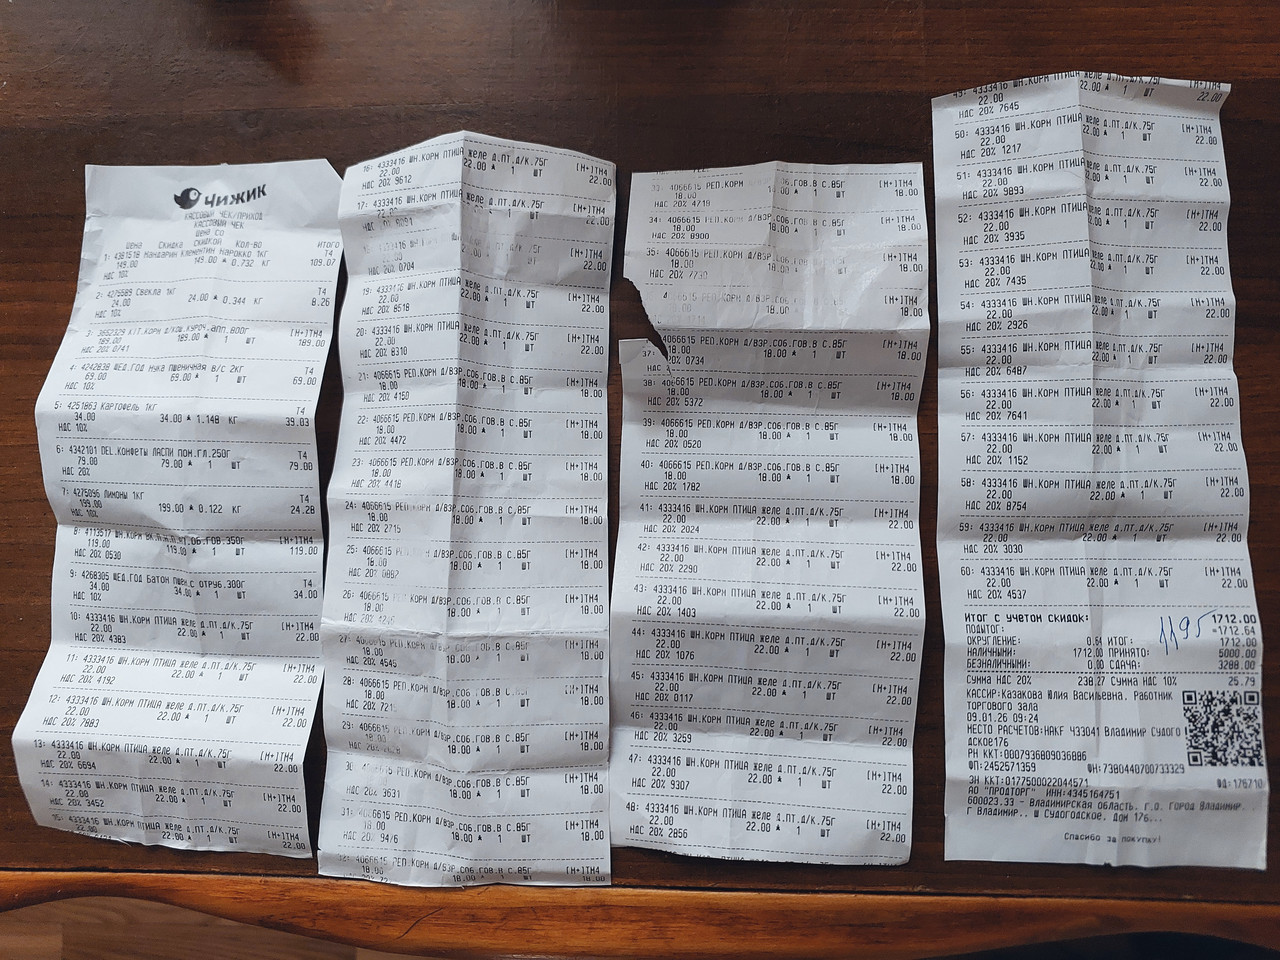 ЧИЖИК
КАССОВЫЙ ЧЕК/ПРИХОД
КАССОВЫЙ ЧЕК
Цена со
Цена Скидка скидкой Кол-во Итого
1: 4381518 Мандарин Клементин Марокко 1кг Т4
149.00 149.00 ▲ 0.732 кг 109.07
НДС 10%
2: 4275589 Свекла 1кг Т4
24.00 24.00 ▲ 0.344 кг 8.26
НДС 10%
3: 3652329 KIT.Корм д/кош.куроч.апп.800г [М+]ТМ4
189.00 189.00 ▲ 1 шт 189.00
НДС 20% 0741
4: 4242838 ШЕД.ГОД Мука пшеничная в/с 2кг Т4
69.00 69.00 ▲ 1 шт 69.00
НДС 10%
5: 4251863 Картофель 1кг Т4
34.00 34.00 ▲ 1.148 кг 39.03
НДС 10%
6: 4342101 DEL.Конфеты ЛАСПИ пом.гл.250г Т4
79.00 79.00 ▲ 1 шт 79.00
НДС 20%
7: 4275096 Лимоны 1кг Т4
199.00 199.00 ▲ 0.122 кг 24.28
НДС 10%
8: 4113517 ШН.Корм 350г [М+]ТМ4
119.00 119.00 ▲ 1 шт 119.00
НДС 20% 0530
9: 4268305 ШЕД.ГОД Батон пшен.с отруб.300г Т4
34.00 34.00 ▲ 1 шт 34.00
НДС 10%
10: 4333416 ШН.КОРМ ПТИЦА желе д.пт.д/к.75г [М+]ТМ4
22.00 22.00 ▲ 1 шт 22.00
НДС 20% 4383
11: 4333416 ШН.КОРМ ПТИЦА желе д.пт.д/к.75г [М+]ТМ4
22.00 22.00 ▲ 1 шт 22.00
НДС 20% 4192
12: 4333416 ШН.КОРМ ПТИЦА желе д.пт.д/к.75г [М+]ТМ4
22.00 22.00 ▲ 1 шт 22.00
НДС 20% 7883
13: 4333416 ШН.КОРМ ПТИЦА желе д.пт.д/к.75г [М+]ТМ4
22.00 22.00 ▲ 1 шт 22.00
НДС 20% 6694
14: 4333416 ШН.КОРМ ПТИЦА желе д.пт.д/к.75г [М+]ТМ4
22.00 22.00 ▲ 1 шт 22.00
НДС 20% 3452
15: 4333416 ШН.КОРМ ПТИЦА желе д.пт.д/к.75г [М+]ТМ4
22.00 22.00 ▲ 1 шт 22.00
16: 4333416 ШН.КОРМ ПТИЦА желе д.пт.д/к.75г [М+]ТМ4
22.00 22.00 ▲ 1 шт 22.00
НДС 20% 9612
17: 4333416 ШН.КОРМ ПТИЦА желе д.пт.д/к.75г [М+]ТМ4
22.00 ▲ 1 шт 22.00
8091
желе д.пт.д/к.75г [М+]ТМ4
22.00 22.00 ▲ 1 шт 22.00
НДС 20% 0704
19: 4333416 ШН.КОРМ ПТИЦА желе д.пт.д/к.75г [М+]ТМ4
22.00 22.00 ▲ 1 шт 22.00
НДС 20% 8518
20: 4333416 ШН.КОРМ ПТИЦА желе д.пт.д/к.75г [М+]ТМ4
22.00 22.00 ▲ 1 шт 22.00
НДС 20% 8310
21: 4066615 РЕП.КОРМ д/взр.соб.гов.в с.85г [М+]ТМ4
18.00 18.00 ▲ 1 шт 18.00
НДС 20% 4150
22: 4066615 РЕП.КОРМ д/взр.соб.гов.в с.85г [М+]ТМ4
18.00 18.00 ▲ 1 шт 18.00
НДС 20% 4472
23: 4066615 РЕП.КОРМ д/взр.соб.гов.в с.85г [М+]ТМ4
18.00 18.00 ▲ 1 шт 18.00
НДС 20% 4418
24: 4066615 РЕП.КОРМ д/взр.соб.гов.в с.85г [М+]ТМ4
18.00 18.00 ▲ 1 шт 18.00
НДС 20% 2715
25: 4066615 РЕП.КОРМ д/взр.соб.гов.в с.85г [М+]ТМ4
18.00 18.00 ▲ 1 шт 18.00
НДС 20%
26: 4066615 РЕП.КОРМ д/взр.соб.гов.в с.85г [М+]ТМ4
18.00 18.00 ▲ 1 шт 18.00
НДС 20%
27: 4066615 РЕП.КОРМ д/взр.соб.гов.в с.85г [М+]ТМ4
18.00 18.00 ▲ 1 шт 18.00
НДС 20% 4545
28: 4066615 РЕП.КОРМ д/взр.соб.гов.в с.85г [М+]ТМ4
18.00 18.00 ▲ 1 шт 18.00
НДС 20%
29: 4066615 РЕП.КОРМ д/взр.соб.гов.в с.85г [М+]ТМ4
18.00 18.00 ▲ 1 шт 18.00
НДС 20%
30: 4066615 РЕП.КОРМ д/взр.соб.гов.в с.85г [М+]ТМ4
18.00 18.00 ▲ 1 шт 18.00
НДС 20% 3631
31: 4066615 РЕП.КОРМ д/взр.соб.гов.в с.85г [М+]ТМ4
18.00 18.00 ▲ 1 шт 18.00
НДС 20% 9476
32: 4066615 РЕП.КОРМ д/взр.соб.гов.в с.85г [М+]ТМ4
18.00 18.00 ▲ 1 шт 18.00
33: 4066615 РЕП.КОРМ .гов.в с.85г [М+]ТМ4
18.00 18.00 ▲ 1 шт 18.00
НДС 20% 4719
34: 4066615 РЕП.КОРМ .соб.гов.в с.85г [М+]ТМ4
18.00 18.00 ▲ 1 шт 18.00
НДС 20% 8900
35: 4066615 РЕП.КОРМ .соб.гов.в с.85г [М+]ТМ4
18.00 18.00 ▲ 1 шт 18.00
НДС 20% 7730
РЕП.КОРМ .соб.гов.в с.85г [М+]ТМ4
18.00 18.00 ▲ 1 шт 18.00
37: 4066615 РЕП.КОРМ д/взр.соб.гов.в с.85г [М+]ТМ4
18.00 18.00 ▲ 1 шт 18.00
20% 0734
38: 4066615 РЕП.КОРМ д/взр.соб.гов.в с.85г [М+]ТМ4
18.00 18.00 ▲ 1 шт 18.00
НДС 20% 5372
39: 4066615 РЕП.КОРМ д/взр.соб.гов.в с.85г [М+]ТМ4
18.00 18.00 ▲ 1 шт 18.00
НДС 20% 0520
40: 4066615 РЕП.КОРМ д/взр.соб.гов.в с.85г [М+]ТМ4
18.00 18.00 ▲ 1 шт 18.00
НДС 20% 1782
41: 4333416 ШН.КОРМ ПТИЦА желе д.пт.д/к.75г [М+]ТМ4
22.00 22.00 ▲ 1 шт 22.00
НДС 20% 2024
42: 4333416 ШН.КОРМ ПТИЦА желе д.пт.д/к.75г [М+]ТМ4
22.00 22.00 ▲ 1 шт 22.00
НДС 20% 2290
43: 4333416 ШН.КОРМ ПТИЦА желе д.пт.д/к.75г [М+]ТМ4
22.00 22.00 ▲ 1 шт 22.00
НДС 20% 1403
44: 4333416 ШН.КОРМ ПТИЦА желе д.пт.д/к.75г [М+]ТМ4
22.00 22.00 ▲ 1 шт 22.00
НДС 20% 1076
45: 4333416 ШН.КОРМ ПТИЦА желе д.пт.д/к.75г [М+]ТМ4
22.00 22.00 ▲ 1 шт 22.00
НДС 20% 0117
46: 4333416 ШН.КОРМ ПТИЦА желе д.пт.д/к.75г [М+]ТМ4
22.00 22.00 ▲ 1 шт 22.00
НДС 20% 3259
47: 4333416 ШН.КОРМ ПТИЦА желе д.пт.д/к.75г [М+]ТМ4
22.00 22.00 ▲ 1 шт 22.00
НДС 20% 9307
48: 4333416 ШН.КОРМ ПТИЦА желе д.пт.д/к.75г [М+]ТМ4
22.00 22.00 ▲ 1 шт 22.00
НДС 20% 2856
49: 4333416 ШН.КОРМ ПТИЦА желе д.пт.д/к.75г [М+]ТМ4
22.00 22.00 ▲ 1 шт 22.00
НДС 20% 7645
50: 4333416 ШН.КОРМ ПТИЦА желе д.пт.д/к.75г [М+]ТМ4
22.00 22.00 ▲ 1 шт 22.00
НДС 20% 1217
51: 4333416 ШН.КОРМ ПТИЦА желе д.пт.д/к.75г [М+]ТМ4
22.00 22.00 ▲ 1 шт 22.00
НДС 20% 9893
52: 4333416 ШН.КОРМ ПТИЦА желе д.пт.д/к.75г [М+]ТМ4
22.00 22.00 ▲ 1 шт 22.00
НДС 20% 3935
53: 4333416 ШН.КОРМ ПТИЦА желе д.пт.д/к.75г [М+]ТМ4
22.00 22.00 ▲ 1 шт 22.00
НДС 20% 7435
54: 4333416 ШН.КОРМ ПТИЦА желе д.пт.д/к.75г [М+]ТМ4
22.00 22.00 ▲ 1 шт 22.00
НДС 20% 2926
55: 4333416 ШН.КОРМ ПТИЦА желе д.пт.д/к.75г [М+]ТМ4
22.00 22.00 ▲ 1 шт 22.00
НДС 20% 6487
56: 4333416 ШН.КОРМ ПТИЦА желе д.пт.д/к.75г [М+]ТМ4
22.00 22.00 ▲ 1 шт 22.00
НДС 20% 7641
57: 4333416 ШН.КОРМ ПТИЦА желе д.пт.д/к.75г [М+]ТМ4
22.00 22.00 ▲ 1 шт 22.00
НДС 20% 1152
58: 4333416 ШН.КОРМ ПТИЦА желе д.пт.д/к.75г [М+]ТМ4
22.00 22.00 ▲ 1 шт 22.00
НДС 20% 8754
59: 4333416 ШН.КОРМ ПТИЦА желе д.пт.д/к.75г [М+]ТМ4
22.00 22.00 ▲ 1 шт 22.00
НДС 20% 3030
60: 4333416 ШН.КОРМ ПТИЦА желе д.пт.д/к.75г [М+]ТМ4
22.00 22.00 ▲ 1 шт 22.00
НДС 20% 4537
Итог с учетом скидок: 1712.00
ПОДЫТОГ: =1712.64
1195
ОКРУГЛЕНИЕ: 0.64 ИТОГ: 1712.00
НАЛИЧНЫМИ: 1712.00 ПРИНЯТО: 5000.00
БЕЗНАЛИЧНЫМИ: 0.00 СДАЧА: 3288.00
Сумма НДС 20% 238.27 Сумма НДС 10% 25.79
КАССИР:Казакова Юлия Васильевна. Работник
торгового зала
09.01.26 09:24
МЕСТО РАСЧЕТОВ:НАКГ Ч33041 Владимир Судого
дское176
РН ККТ:0007936809036886
ФП:2452571359 ФН:7380440700733329
ЗН ККТ:01775000220445​71 ФД:176710
АО "ПРОДТОРГ" ИНН:4345164751
600023.33 - Владимирская область. г.о. город Владимир.
г Владимир.. ш Судогодское. Дом 176...
Спасибо за покупку!